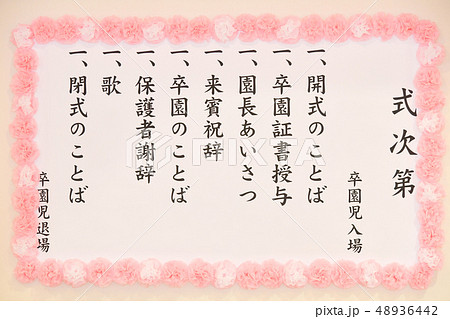 式次第
卒園児入場
一、開式のことば
一、卒園証書授与
一、園長あいさつ
一、来賓祝辞
一、卒園のことば
一、保護者謝辞
一、歌
一、閉式のことば
卒園児退場
PIXTA
pixta.jp - 48936442